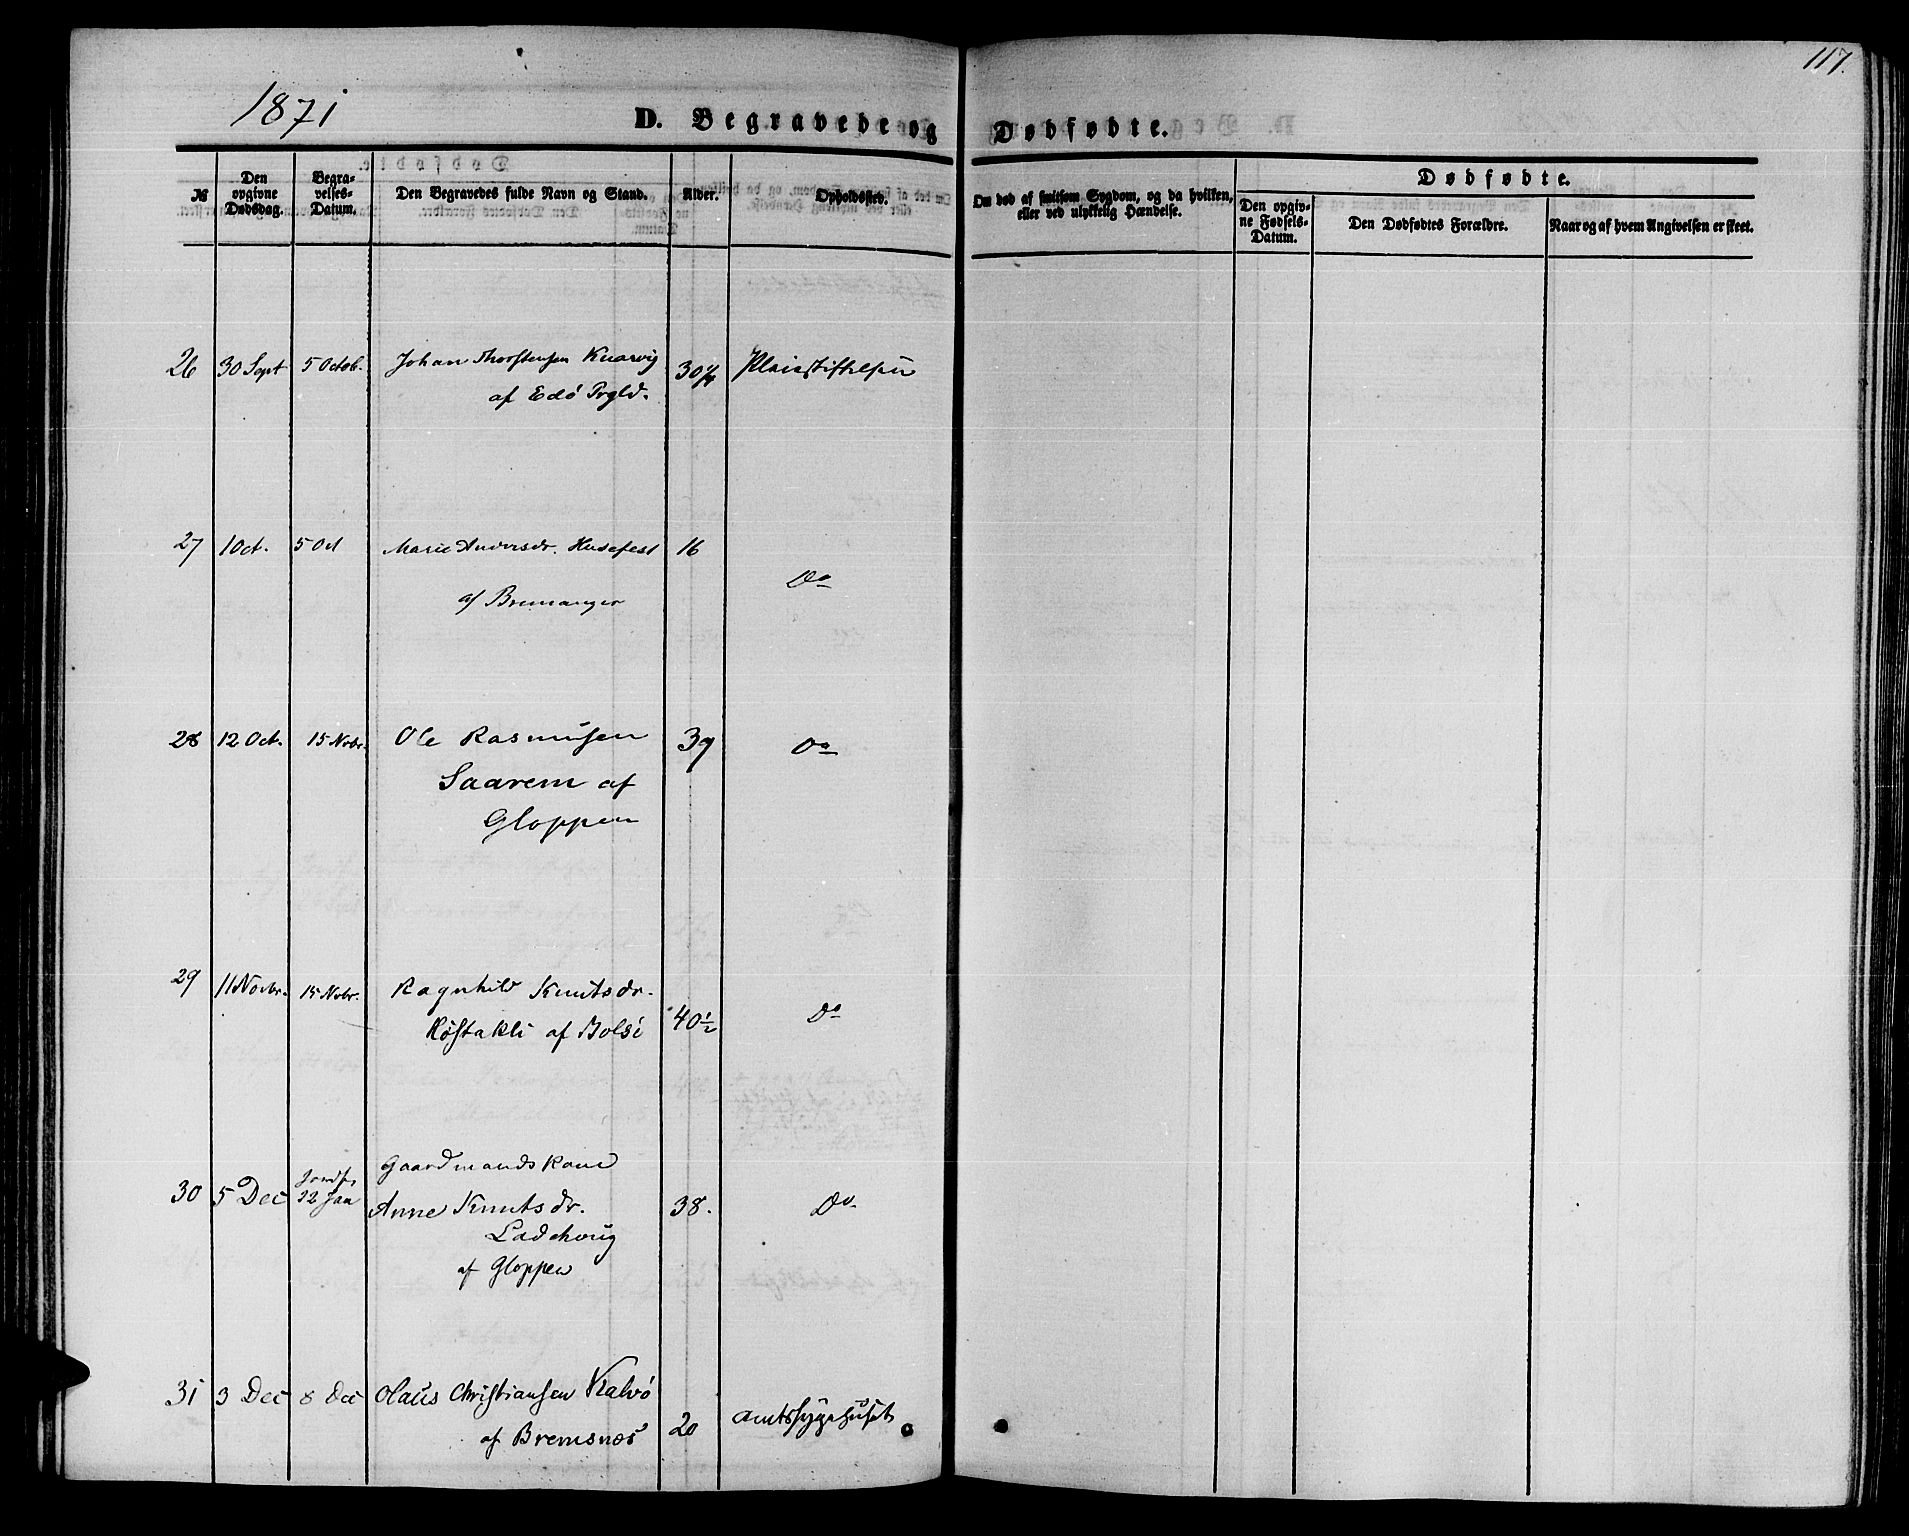 117.
1871
D. Begravede og Dødfødte.
№
Den opgivne Dødsdag.
Begravelses-Datum.
Den Begravedes fulde Navn og Stand.
Alder.
Opholdssted.
Om død af smitsom Sygdom, og da hvilken, eller ved ulykkelig Hændelse.
Dødfødte.
Den opgivne Fødsels-Datum.
Den Dødfødtes Forældre.
Naar og af hvem Angivelsen er skeet.
26 30 Sept 5 Octob. Johan Thorstensen Knarvig Pleiestiftelsen
af Edø Prgld.
27 1 Oct. 5 Oct Marie Andersdr. Husefest 16
af Bremanger Do
28 12 Oct. 15 Novbr. Ole Rasmusen 39 Do
Saarem af
Gloppen
29 11 Novbr. 15 Nvbr. Ragnhild Knutsdr. 40½ Do
Røstakli af Bolsø
Gaardmandskone
30 5 Dec Jordf. 12 Jan Anne Knutsdr. 38. Do
af Gloppen
31 3 Dec 8 Dec Olaus Christiansen Kalvø 20 Amtssygehuset
af Bremsnes